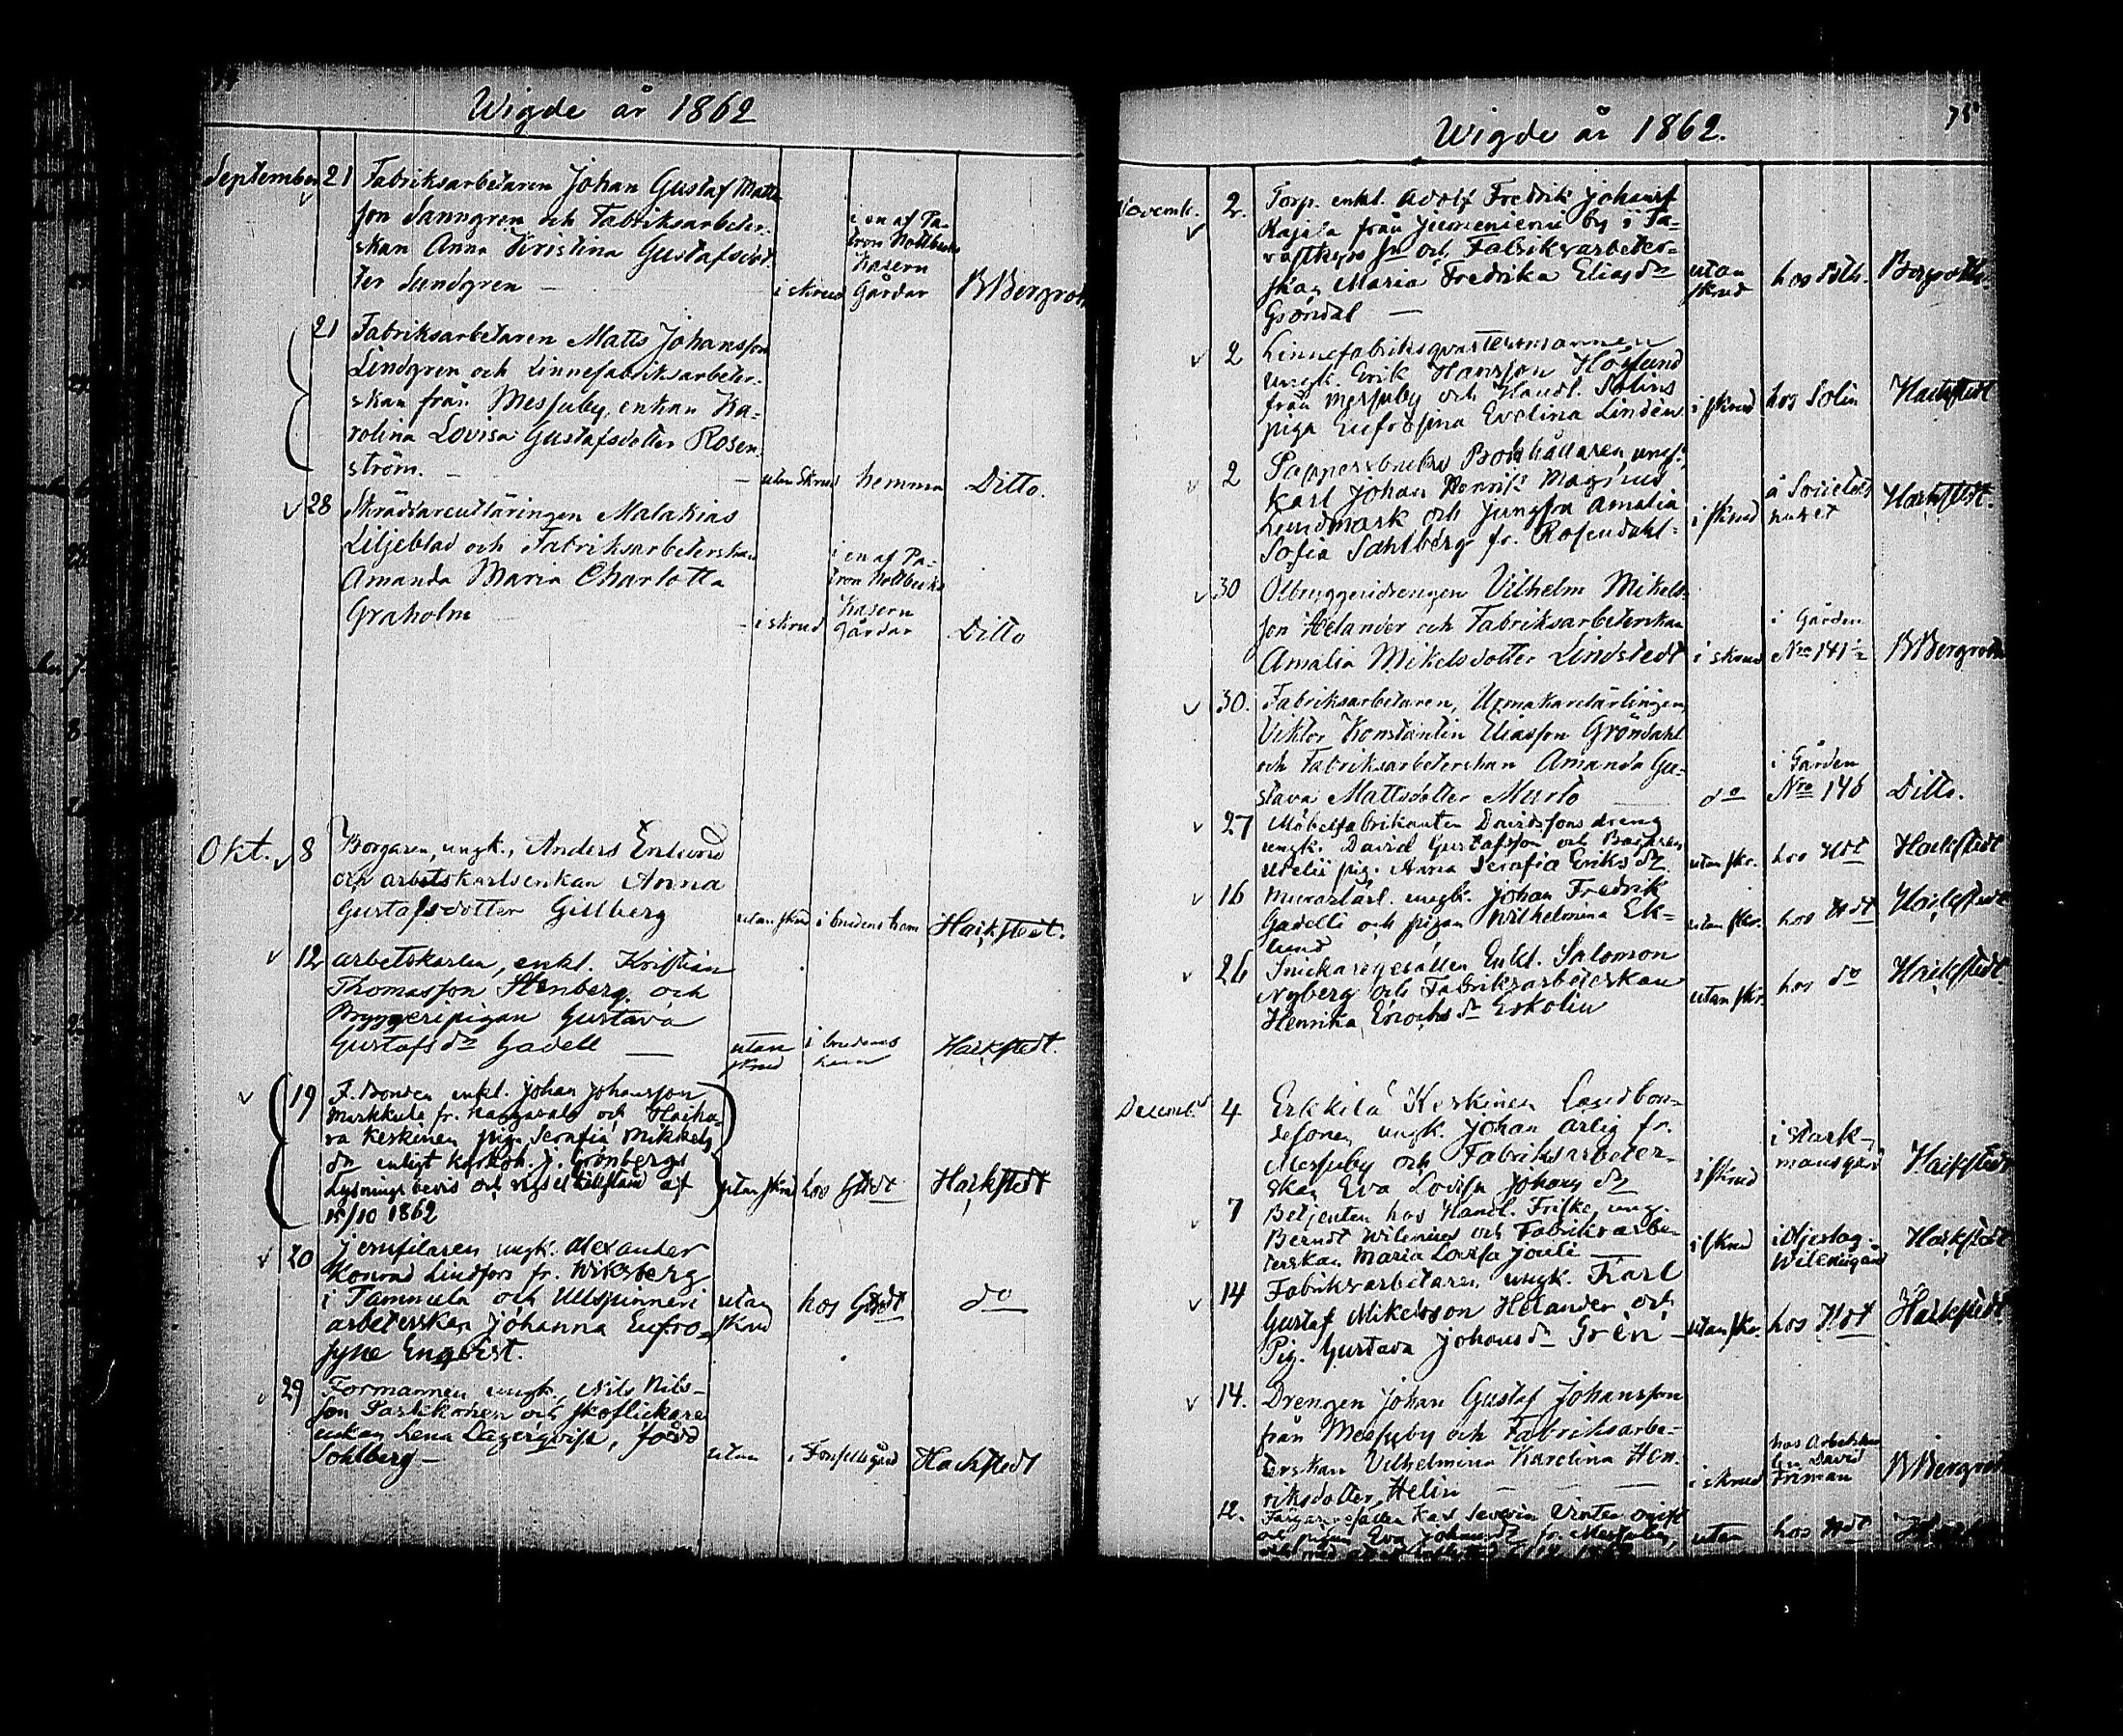 Wigde år 1862
September 21 Fabriksarbetaren Johan Gustaf Matts
son Sanngren och Fabriksarbeter-
skan Anna Kristina Gustafsdot
ter Sundgren — i skrud i en af Pa-
tron Nottbecks
Kasern
Gårdar B Bergroth
21 Fabriksarbetaren Matts Johansson
Lindgren och Linnefabriksarbeter-
skan från Messuby, enkan Ka-
rolina Lovisa Gustafsdotter Rosen-
ström. — utan skrud hemma Ditto.
28 Skräddareutläringen Malakias
Liljeblad och Fabriksarbeterskan
Amanda Maria Charlotta
Graholm — i skrud i en af Pa-
tron Nottbecks
Kasern
Gårdar Ditto
Okt. 8 Borgaren, ungk., Anders Enlund
och arbetskarlsenkan Anna
Gustafsdotter Gillberg utan skrud i brudens hem Haikstedt.
12 arbetskarlen, enkl. Kristian
Thomasson Stenberg och
Bryggeripigan Gustava
Gustafs dr Gadell — utan
skrud i brudens
hem Haikstedt.
19 F. Bonden enkl. Johan Johansson
Markkula fr. och Haiha-
ra Keskinen pig. Serafia Mikkels
dr enligt J. Grönbergs
Lysnings bevis och af
15/10 1862 utan skrud hos Haikstedt
20 ungk. Alexander
Konrad Lindfors fr. Wiksberg
i Tammela och Ullspinneri
arbeterskan Johanna Eufro-
syne Enqvist. utan
skrud hos do
29 Formannen ungk. Nils Nils-
son Paskkonen och skoflickare
enkan Lena Lagerqvist, född
Sohlberg — utan i Forssellsgård Haikstedt
75
Wigde år 1862.
Novemb. 2. Torp. enkl. Adolf Fredrik Johanss
Kajila från by i Ta-
vastkyro sn och Fabriksarbeter-
skan Maria Fredrika Elias dr
Gröndal — utan
skrud hos Bergroth
2 Linnefabriksqvastersmannen
ungk. Erik Hansson Höglund
från Messuby och Handl. Solins
piga Eufrosina Evelina Lindén i skrud hos Solin Haikstedt
2 Pappersbruks Bokhållaren, ungk.
Karl Johan Henrik Magnus
Lundmark och Jungfrn Amalia
Sofia Sahlberg fr. Rosendahl. i skrud å Societets
huset Haikstedt.
30 Ölbryggeridrengen Vilhelm Mikels-
son Helander och Fabriksarbeterskan
Amalia Mikelsdotter Lindstedt i skrud i Gården
Nro 141 ½ B Bergroth
30. Fabriksarbetaren, Urmakarelärlingen
Viktor Konstantin Eliasson Gröndahl
och Fabriksarbeterskan Amanda Gu-
stava Mattsdotter Murto — do i Gården
Nro 146 Ditto.
27 Möbelfabrikanten Davidssons dreng
ungk. David Gustafsson och Bagaren
Udelii pig. Anna Serafia Eriks dr utan skr. hos Hdt Haikstedt
16 Murarlärl. ungk. Johan Fredrik
Gadelli och pigan Wilhelmina Ek-
lund utan skr. hos Hdt Haikstedt
26 Snickaregesällen Enkl. Salomon
Nyberg och Fabriksarbeterskan
Henrika Enochs dr Eskolin utan skr. hos do Haikstedt
Decemb. 4 Erkkilä Keskinen Landbon-
desonen ungk. Johan Arlig fr.
Messuby och Fabriksarbeter-
skan Eva Lovisa Johans dr i skrud i Stark-
mansgård Haikstedt
7 Betjenten hos Handl. Friske, ung.
Berndt Wilenius och Fabriksarbe-
terskan Maria Lovisa Jouli — i skrud i
Haikstedt
14 Fabriksarbetaren ungk. Karl
Gustaf Mikelsson Helander och
Pig. Gustava Johans dr Grén — utan skr. hos Hdt Haikstedt
14. Drengen Johan Gustaf Johansson
från Messuby och Fabriksarbe-
terskan Vilhelmina Karolina Hen-
riksdotter Helin — i skrud hos Arbetskar
len David
Friman B Bergroth
12. Färgaregesällen Karl Severin Winter
och pigan Eva Johans dr fr. Messuby, utan hos Hdt